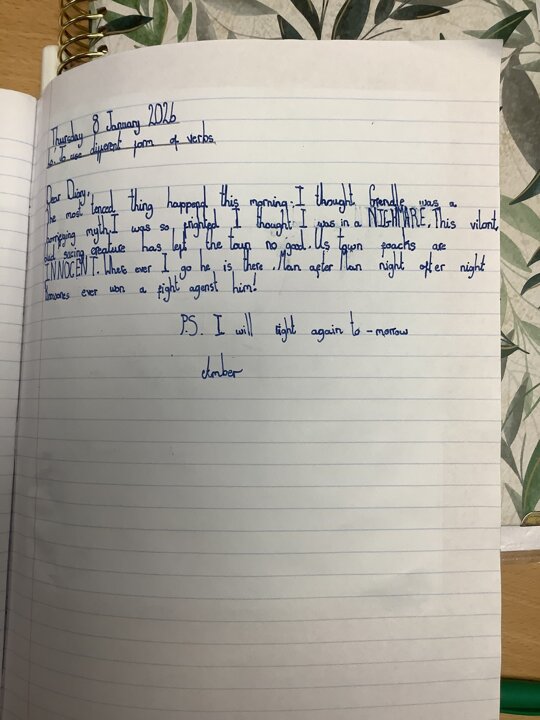 Thursday 8 January 2026
to use different form of verbs
Dear Diary,
The most tenced thing happend this morning. I thought Grendle was a
horrifying myth, I was so frighted I thought I was in a NIGHMARE. This vilont,
saring creature has left the toun no good. Us town foacks are
INNOCENT. Whats ever I go he is there. Man after Man night after night
ever won a fight agenst him!
P.S. I will right again to-morrow
Amber